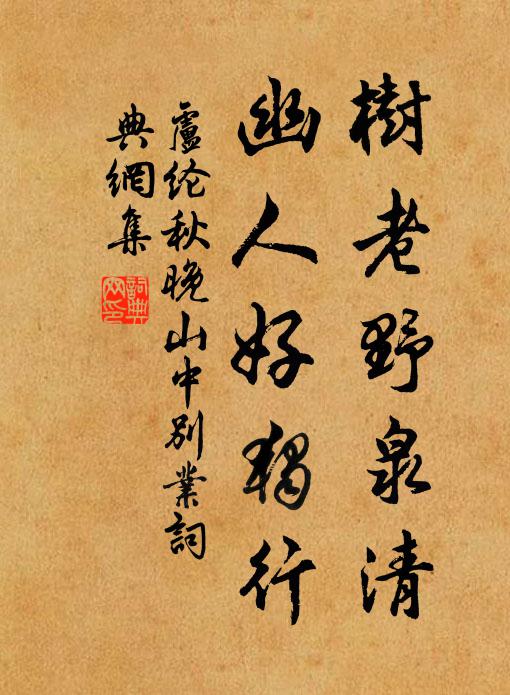 樹老野泉清
幽人好獨行
盧綸秋晚山中別業詞
典網集
詞典
网印